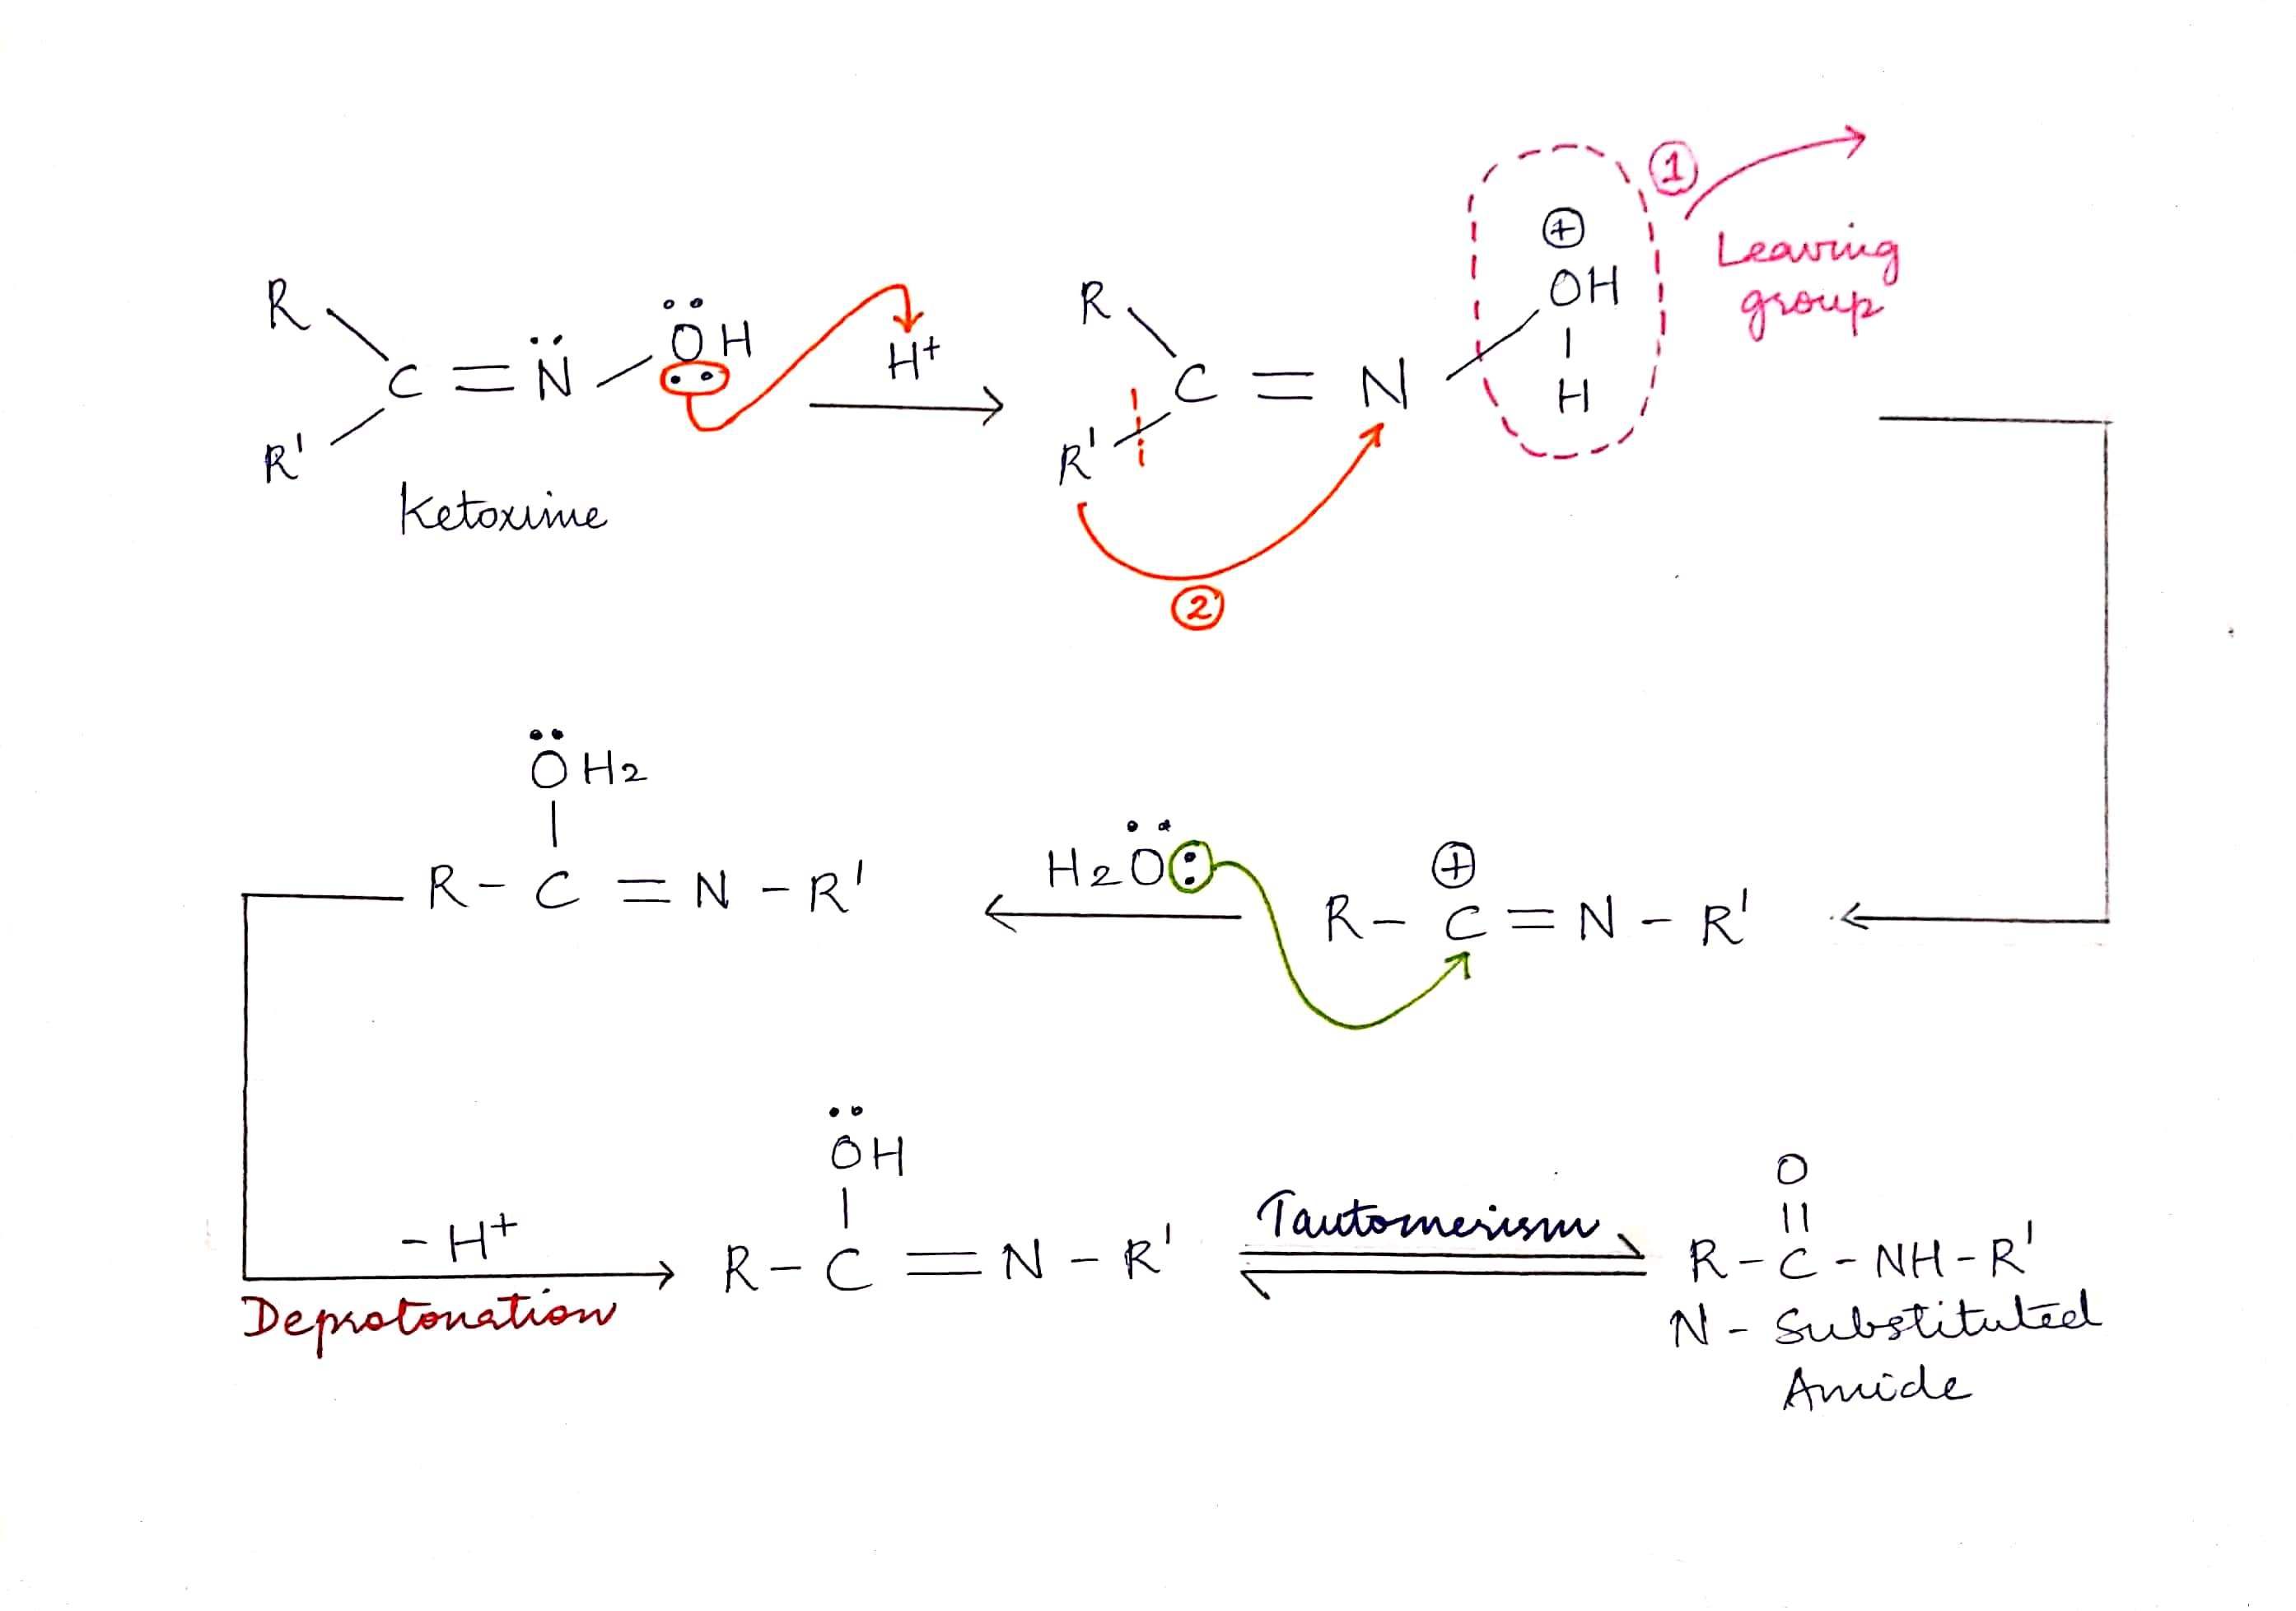 R
R'
C = N̈ - ÖH
H+
Ketoxime
R
R'
C = N
⊕
OH
H
①
Leaving
group
②
ÖH2
R - C = N - R'
H2Ö:
⊕
R - C = N - R'
- H+
Deprotonation
ÖH
R - C = N - R'
Tautomerism
O
R - C - NH - R'
N - Substituted
Amide